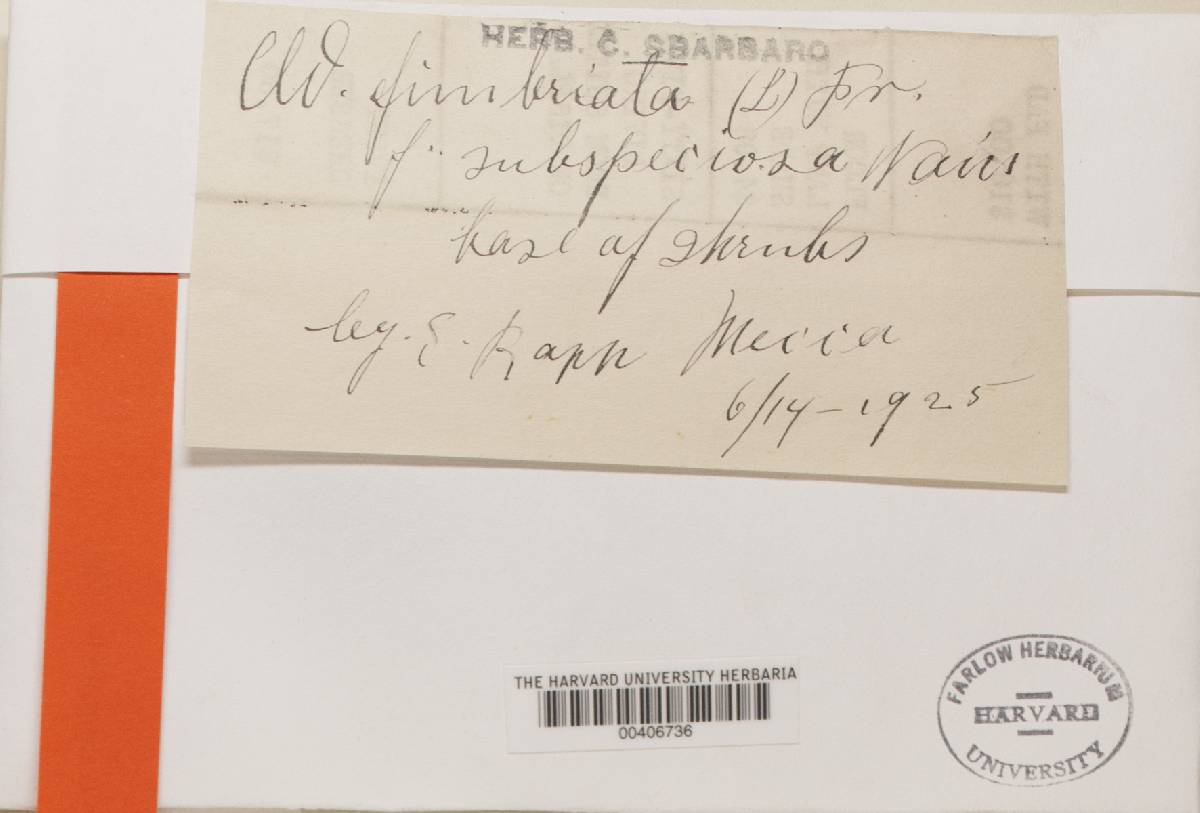 HERB. C. SBARBARO
Cld. fimbriata (L) Fr.
f. subspeciosa Wain
base of shrubs
leg. S. Rapp Mecca
6/14-1925
THE HARVARD UNIVERSITY HERBARIA
00406736
FARLOW HERBARIUM
HARVARD
UNIVERSITY